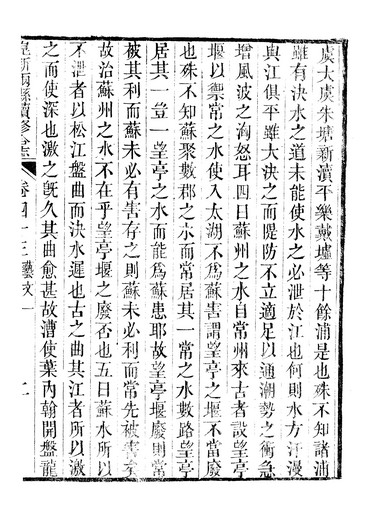 虞大虞朱塘新瀆平樂戴墟等十餘浦是也殊不知諸浦
雖有決水之道未能使水之必泄於江也何則水方汙漫
與江俱平雖大決之而隄防不立適足以通潮勢之衝急
增風波之洶怒耳四曰蘇州之水自常州來古者設望亭
堰以禦常之水使入太湖不爲蘇害謂望亭之堰不當廢
也殊不知蘇聚數郡之水而常居其一常之水數路望亭
居其一豈一望亭之水而能爲蘇患耶故望亭堰廢則常
被其利而蘇未必有害存之則蘇未必利而常先被害矣
故治蘇州之水不在乎望亭堰之廢否也五曰蘇水所以
不泄者以松江盤曲而決水遲也古之曲其江者所以激
之而使深也激之旣久其曲愈甚故漕使葉內翰開盤龍
兩縣續修合志 卷四十三 藝文一 二